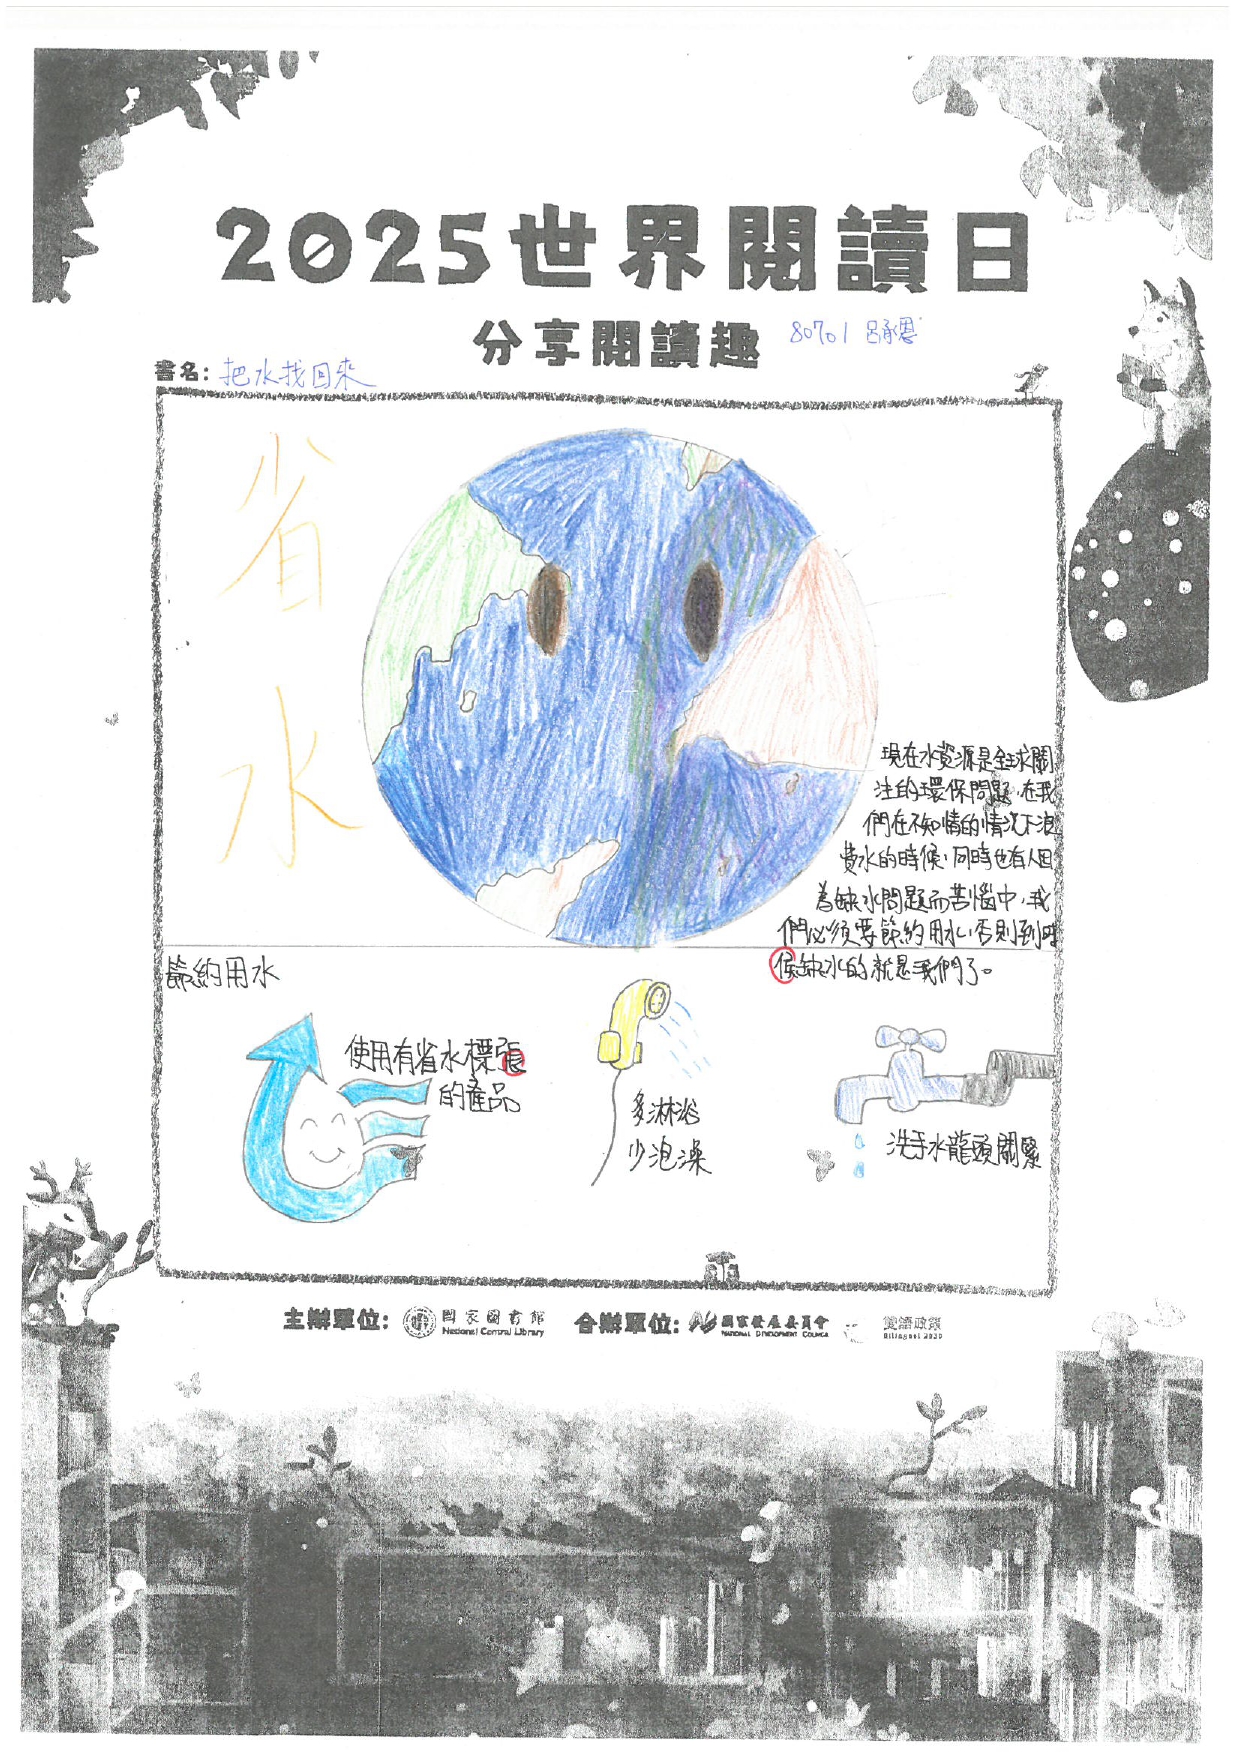 2025世界閱讀日
分享閱讀趣
80701 呂承恩
書名: 把水找回來
省水
現在水資源是全球關
注的環保問題,在我
們在不知情的情況下浪
費水的時候,同時也有人因
為缺水問題而苦惱中,我
們必須要節約用水,否則到時
侯缺水的就是我們了。
節約用水
使用有省水標張
的產品
多淋浴
少泡澡
洗手水龍頭關緊
主辦單位: 國家圖書館
National Central Library
合辦單位: 國家發展委員會
NATIONAL DEVELOPMENT COUNCIL
雙語政策
Bilingual 2030